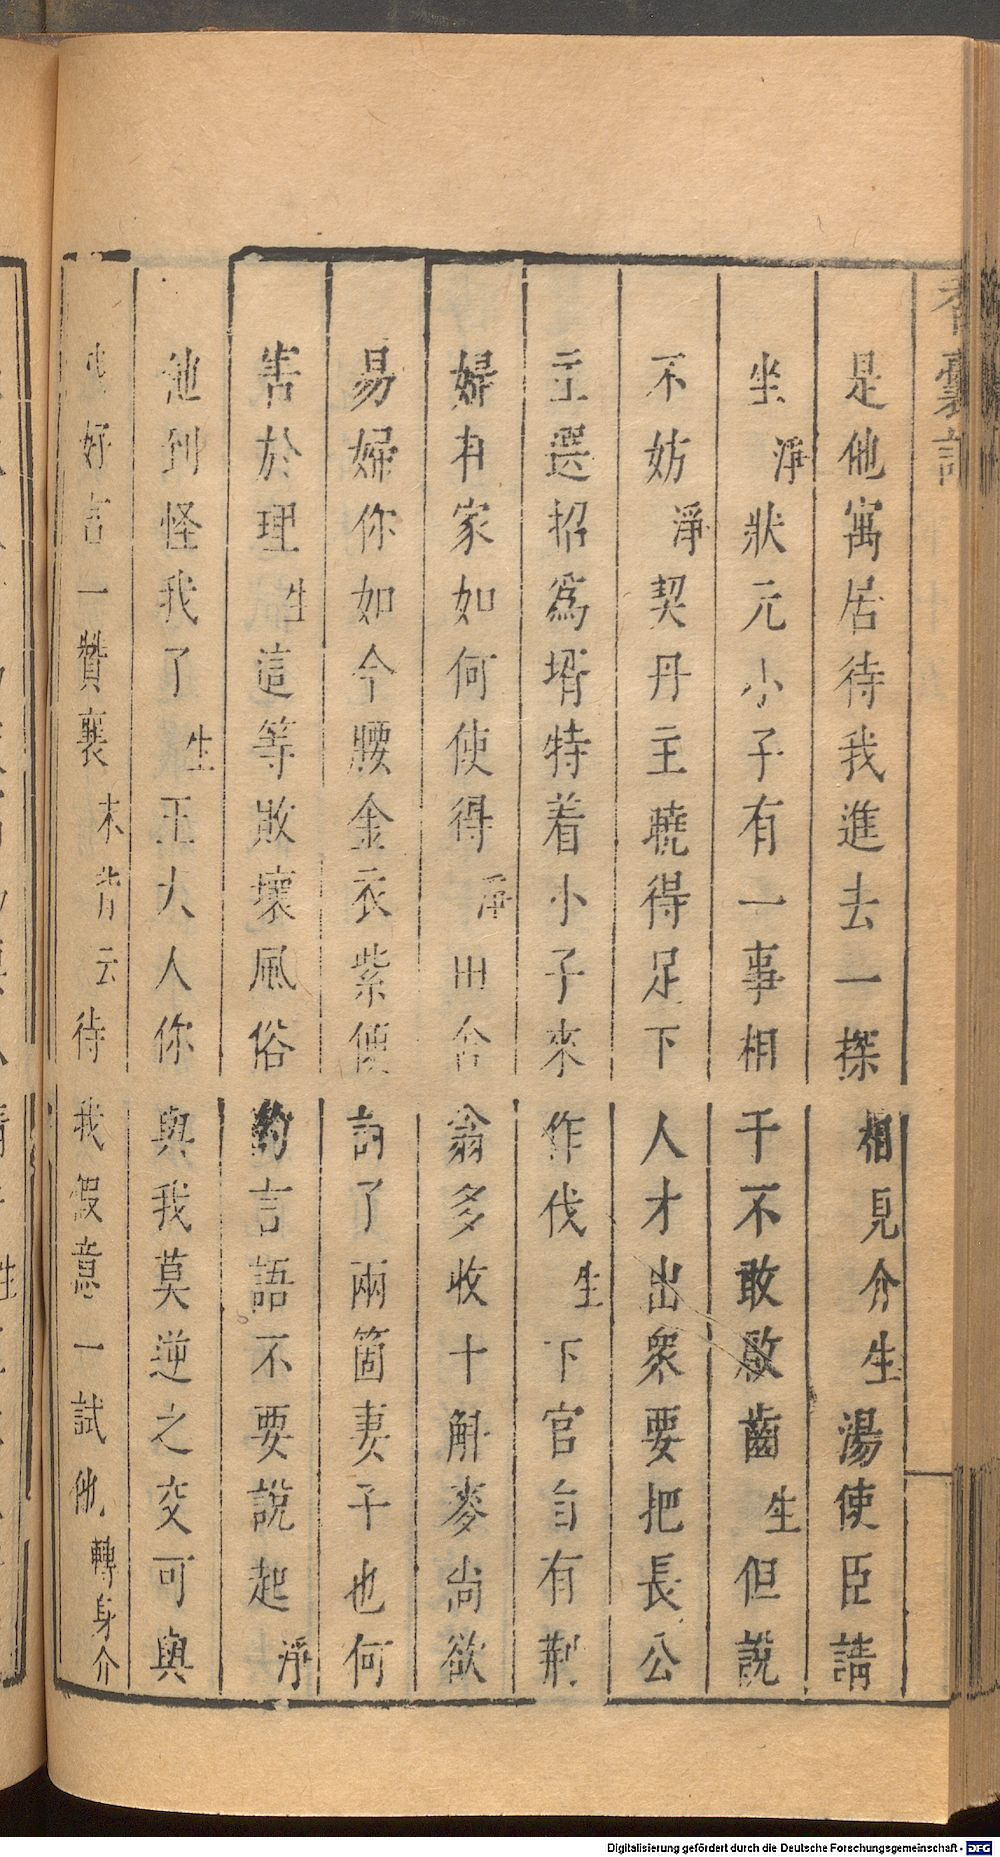 香囊記
是他寓居待我進去一探相見介生湯使臣請
坐淨狀元小子有一事相干不敢啟齒生但說
不妨淨契丹主曉得足下人才出衆要把長公
主選招爲壻特着小子來作伐生下官自有荆
婦有家如何使得淨田舍翁多收十斛麥尚欲
易婦你如今腰金衣紫便討了兩箇妻干也何
害於理生這等敗壞風俗的言語不要說起淨
他到怪我了生王大人你與我莫逆之交可與
好言一贊襄末背云待我假意一試他轉身介
Digitalisierung gefördert durch die Deutsche Forschungsgemeinschaft - DFG